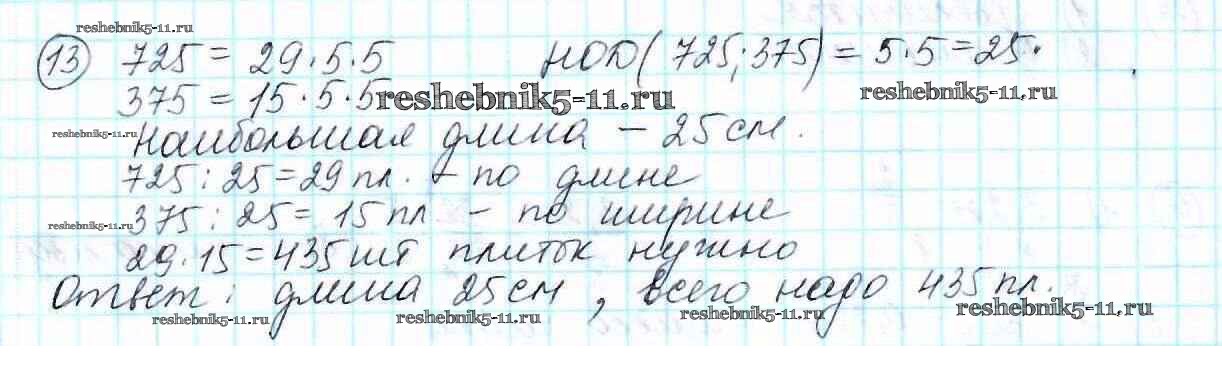 reshebnik5-11.ru
13 725 = 29·5·5 НОД(725;375) = 5·5=25.
375 = 15·5·5 reshebnik5-11.ru reshebnik5-11.ru
reshebnik5-11.ru Наибольшая длина – 25см.
725 : 25 = 29 пл. – по длине
reshebnik5-11.ru 375 : 25 = 15 пл – по ширине
29·15 = 435 шт плиток нужно
Ответ: длина 25см, всего надо 435 пл.
reshebnik5-11.ru reshebnik5-11.ru reshebnik5-11.ru